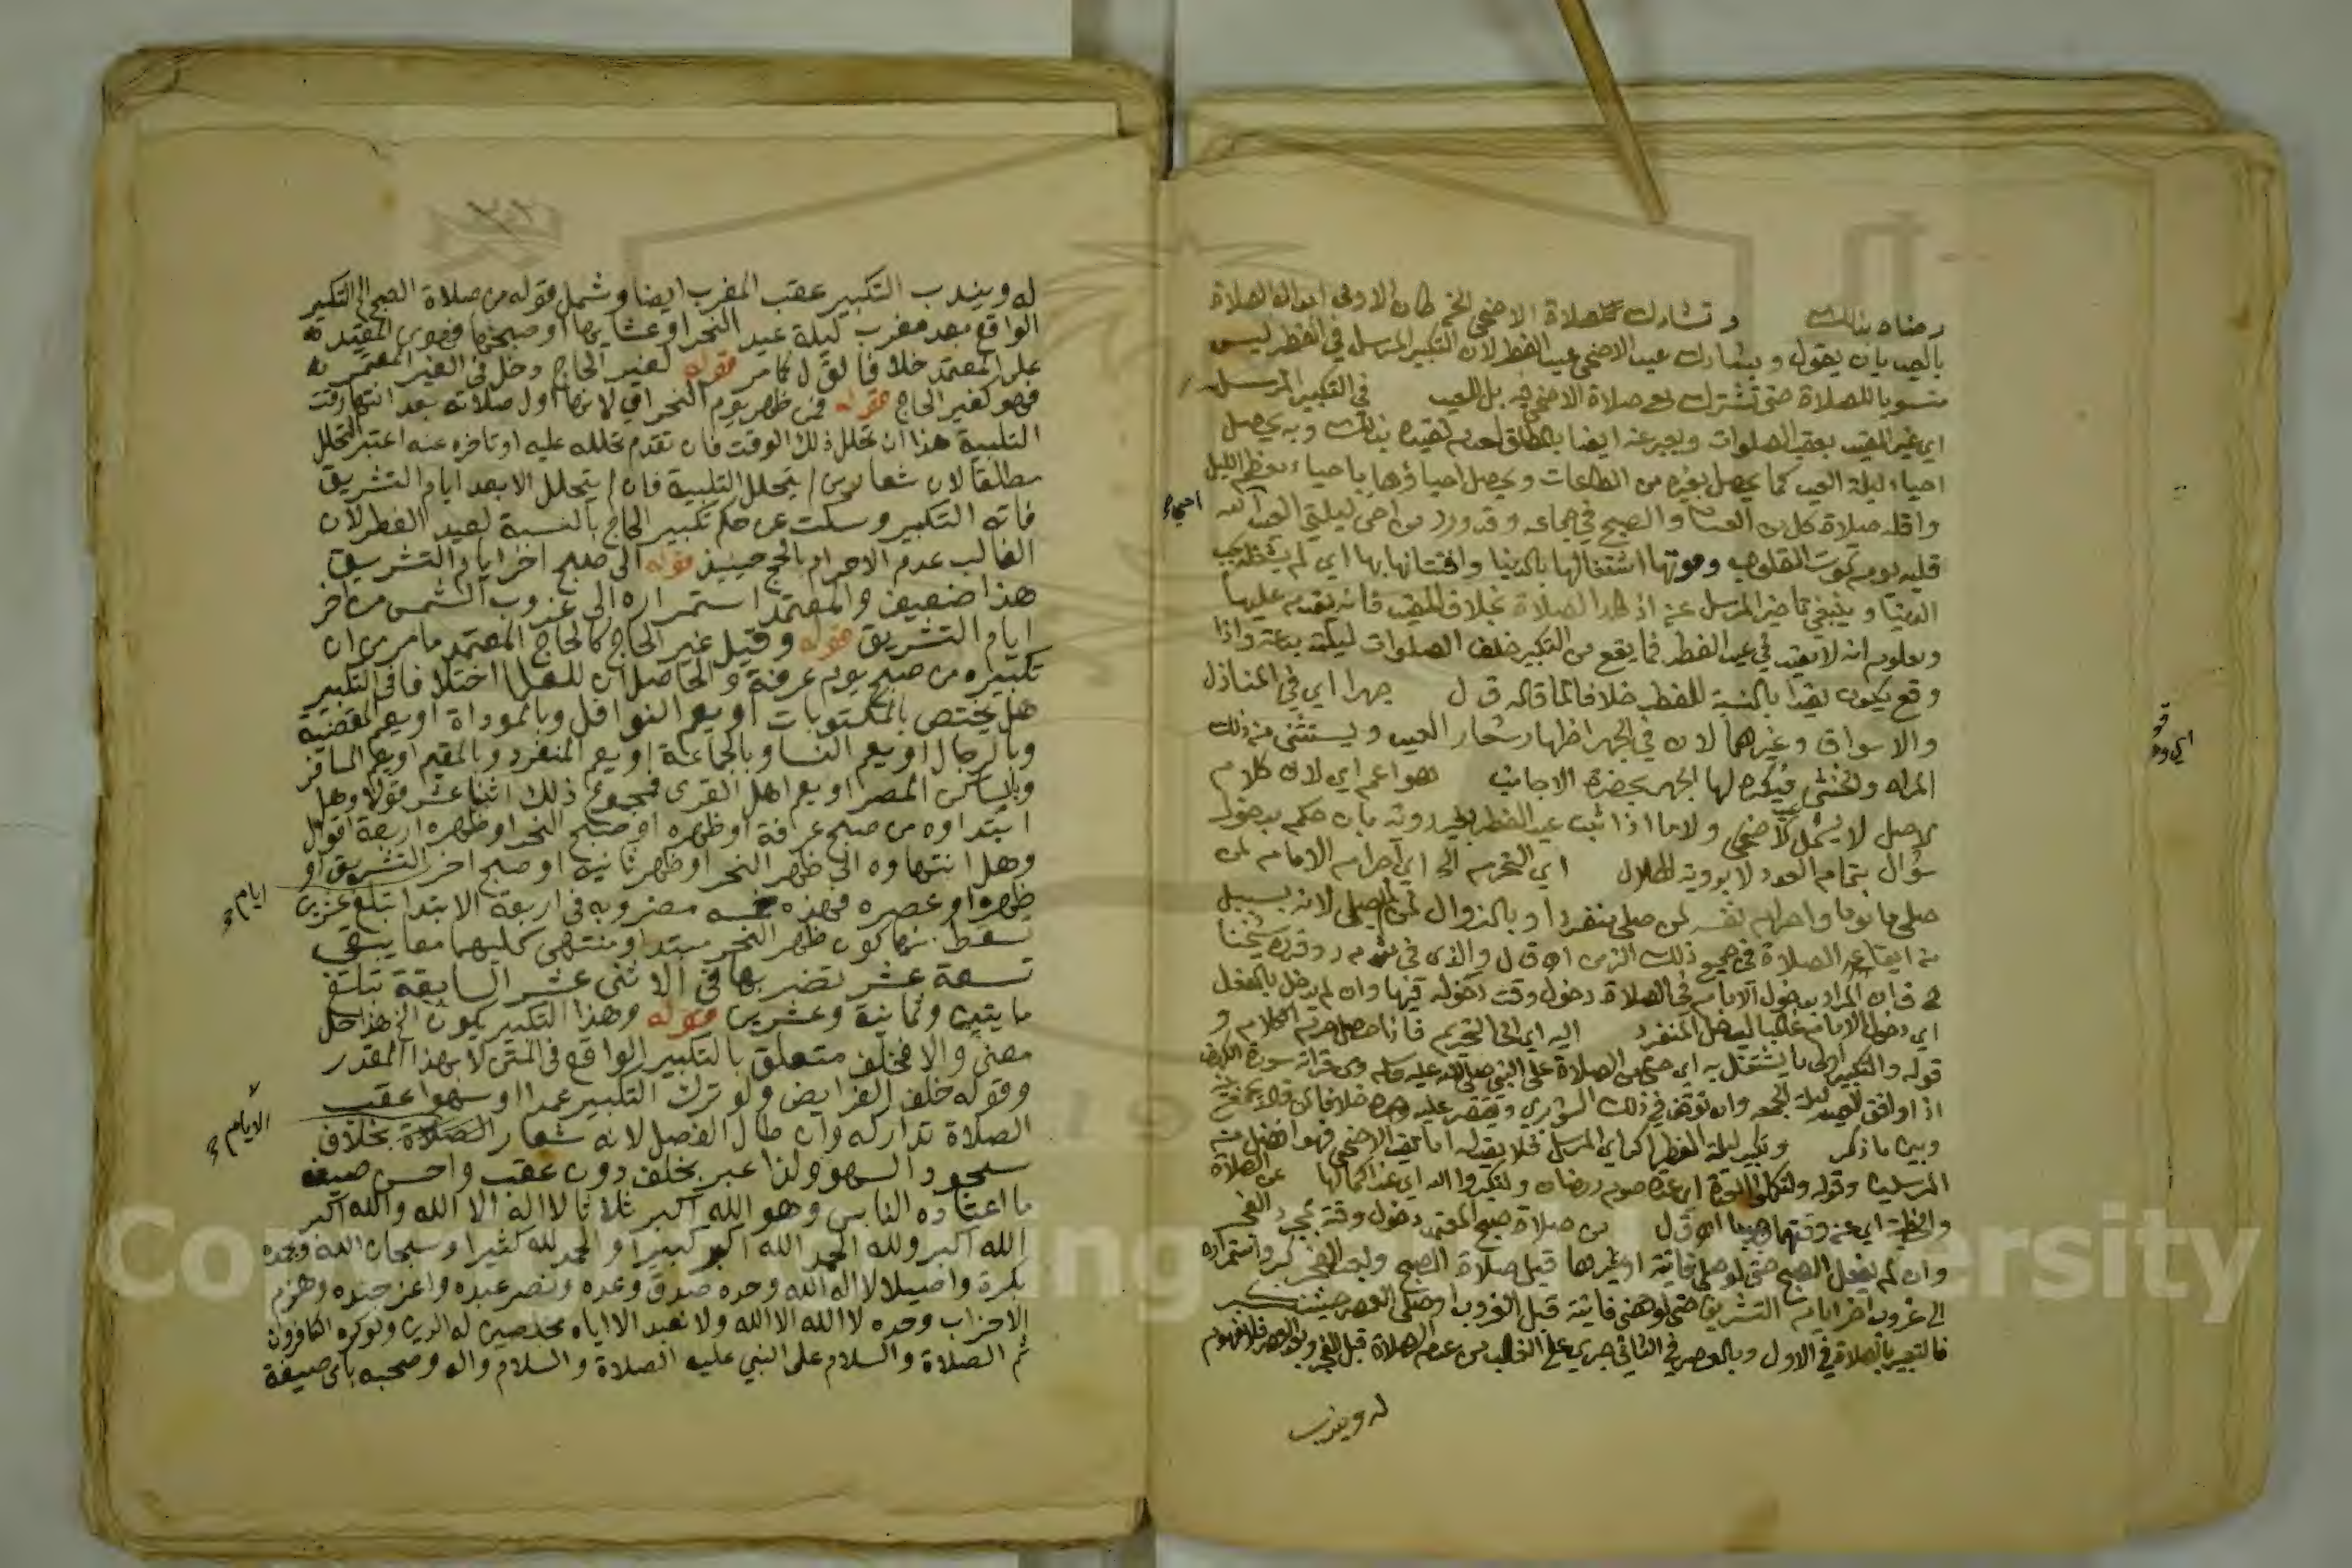 رمضان بذلك وتشارك صلاة الاضحى الخ كان الاولى ابدال الصلاة
بالعيد بان يقول ويشارك عيد الاضحى عيد الفطر لان التكبير المرسل في الفطر ليس
منسوبا للصلاة حتى تشترك معه صلاة الاضحى فيه بل للعيد في التكبير المرسل
اي غير المقيد بعقب الصلوات ويعبر عنه ايضا بالمطلق لعدم تقييده بذلك وبه يحصل
احياء ليلة العيد كما يحصل بغيره من الطاعات ويحصل احياؤها باحياء معظم الليل
واقله صلاة كل من العشا والصبح في جماعة وقد ورد من احى ليلتي العيد
احيى
قلبه يوم تموت القلوب وموتها اشتغالها بالدنيا وافتتانها بها اي لم يشغله حب
الدنيا وينبغي تاخير المرسل عن اذكار الصلاة بخلاف المقيد فانه يقدم عليها
ومعلوم انه لا يقيد في عيد الفطر فما يقع من التكبير خلف الصلوات ليلته واذا
وقع يكون مقيدا بالنسبة للفطر خلافا لما قاله ق ل جهرا اي في المنازل
والاسواق وغيرهما لان في الجهر اظهار شعار العيد ويستثنى من ذلك
المراة والخنثى فيكره لها الجهر بحضرة الاجانب هو اعم اي لان كلام
الاصل لا يشمل الاضحى ولا ما اذا ثبت عيد الفطر بغير رويته بان حكم بدخول
شوال بتمام العدد لا برويت الهلال اي التحرم الخ اي احرام الامام لمن
صلى ماموما واحرام نفسه لمن صلى منفردا وبالزوال لمن لم يصلي لانه بسبيل
من ايقاع الصلاة في جميع ذلك الزمن اه ق ل والذي في ش م ر وقرره شيخنا
ح ف ان المراد بدخول الامام في الصلاة دخول وقت دخوله فيها وان لم يدخل بالفعل
اي دخول الامام غالبا ليصل المنفرد اليه اي الى التحريم فاذا حصل حرم الكلام و
قوله والتكبير اولى ما يشتغل به اي حتى من الصلاة على النبي صلى الله عليه وسلم ومن قراة سورة الكهف
اذا وافق العيد ليلة الجمعة وان توقف في ذلك الشوبري
وبين ما ذكر وتكبير ليلة الفطر اكد اي المرسل فلا يقيد اما مقيد الاضحى فهو افضل من
المرسلين وقوله ولتكملوا العدة اي عدة صوم رمضان ولتكبروا الله اي عند اكمالها عن الصلاة
والخطبة اي عن وقتهما اه ق ل من صلاة صبح المعتمد دخول وقته بمجرد الفجر
وان لم يفعل الصبح حتى لو صلى فايتة او غيرها قبل صلاة الصبح وبعد الفجر كبر واستمراره
الى غروب اخر ايام التشريق حتى لو قضى فايتة قبل الغروب او صلى العصر حينئذ كبر
فالتعبير بالصلاة في الاول وبالعصر في الثاني جري على الغالب من عدم الصلاة قبل الفجر وبعد العصر فلا مفهوم
له ويندب
له ويندب التكبير عقب المغرب ايضا وشمل قوله من صلاة الصبح الخ التكبير
الواقع بعد مغرب ليلة عيد النحر او عشايها او صبحها فهو من المقيد
على المعتمد خلافا لق ل كما مر قوله لغير الحاج دخل في الغير المعتمر
فهو كغير الحاج قوله فمن ظهر يوم النحر اي لانها اول صلاته بعد انتها وقت
التلبية هذا ان تحلل ذلك الوقت فان تقدم تحلله عليه او تاخره عنه اعتبر التحلل
مطلقا لان شعار من لم يتحلل التلبية فان لم يتحلل الا بعد ايام التشريق
فاته التكبير وسكت عن حكم تكبير الحاج بالنسبة لعيد الفطر لان
الغالب عدم الاحرام بالحج حينيذ قوله الى صبح اخر ايام التشريق
هذا ضعيف والمعتمد استمراره الى غروب الشمس من اخر
ايام التشريق قوله وقيل غير الحاج كالحاج المعتمد ما مر من ان
تكبيره من صبح يوم عرفة والحاصل ان للعلما اختلافا في التكبير
هل يختص بالمكتوبات او يعم النوافل وبالموداة او يعم المقضية
وبالرجال او يعم النسا وبالجماعة او يعم المنفرد وبالمقيم او يعم المسافر
وبالساكن المصر او يعم اهل القرى فمجموع ذلك اثنا عشر قولا وهل
ابتداوه من صبح عرفة او ظهره او صبح النحر او ظهره اربعة اقوال
وهل انتهاوه الى ظهر النحر او ظهر ثانيه او صبح اخر التشريق او
ايام
ظهره او عصره فهذه خمسه مضروبه في اربعة الابتدا تبلغ عشرين
يسقط منها كون ظهر النحر مبتدا ومنتهى كليهما معا يبقى
تسعة عشر تضربها في الاثنى عشر السابقة تبلغ
مايتين وثمانية وعشرين قوله وهذا التكبير يكون الخ هذا حل
معنى والا فخلف متعلق بالتكبير الواقع في المتن لا بهذا المقدر
وقوله خلف الفرايض ولو ترك التكبير عمدا او سهوا عقب
الصلاة تداركه وان طال الفصل لانه شعار الصلاة بخلاف
الايام
سجود السهو ولذا عبر بخلف دون عقب واحسن صيغه
ما اعتاده الناس وهو الله اكبر ثلاثا لا اله الا الله والله اكبر
الله اكبر ولله الحمد الله اكبر كبيرا والحمد لله كثيرا وسبحان الله وبحمده
بكرة واصيلا لا اله الا الله وحده صدق وعده ونصر عبده واعز جنده وهزم
الاحزاب وحده لا اله الا الله ولا نعبد الا اياه مخلصين له الدين ولو كره الكافرون
ثم الصلاة والسلام على النبي عليه الصلاة والسلام واله وصحبه باي صيغة